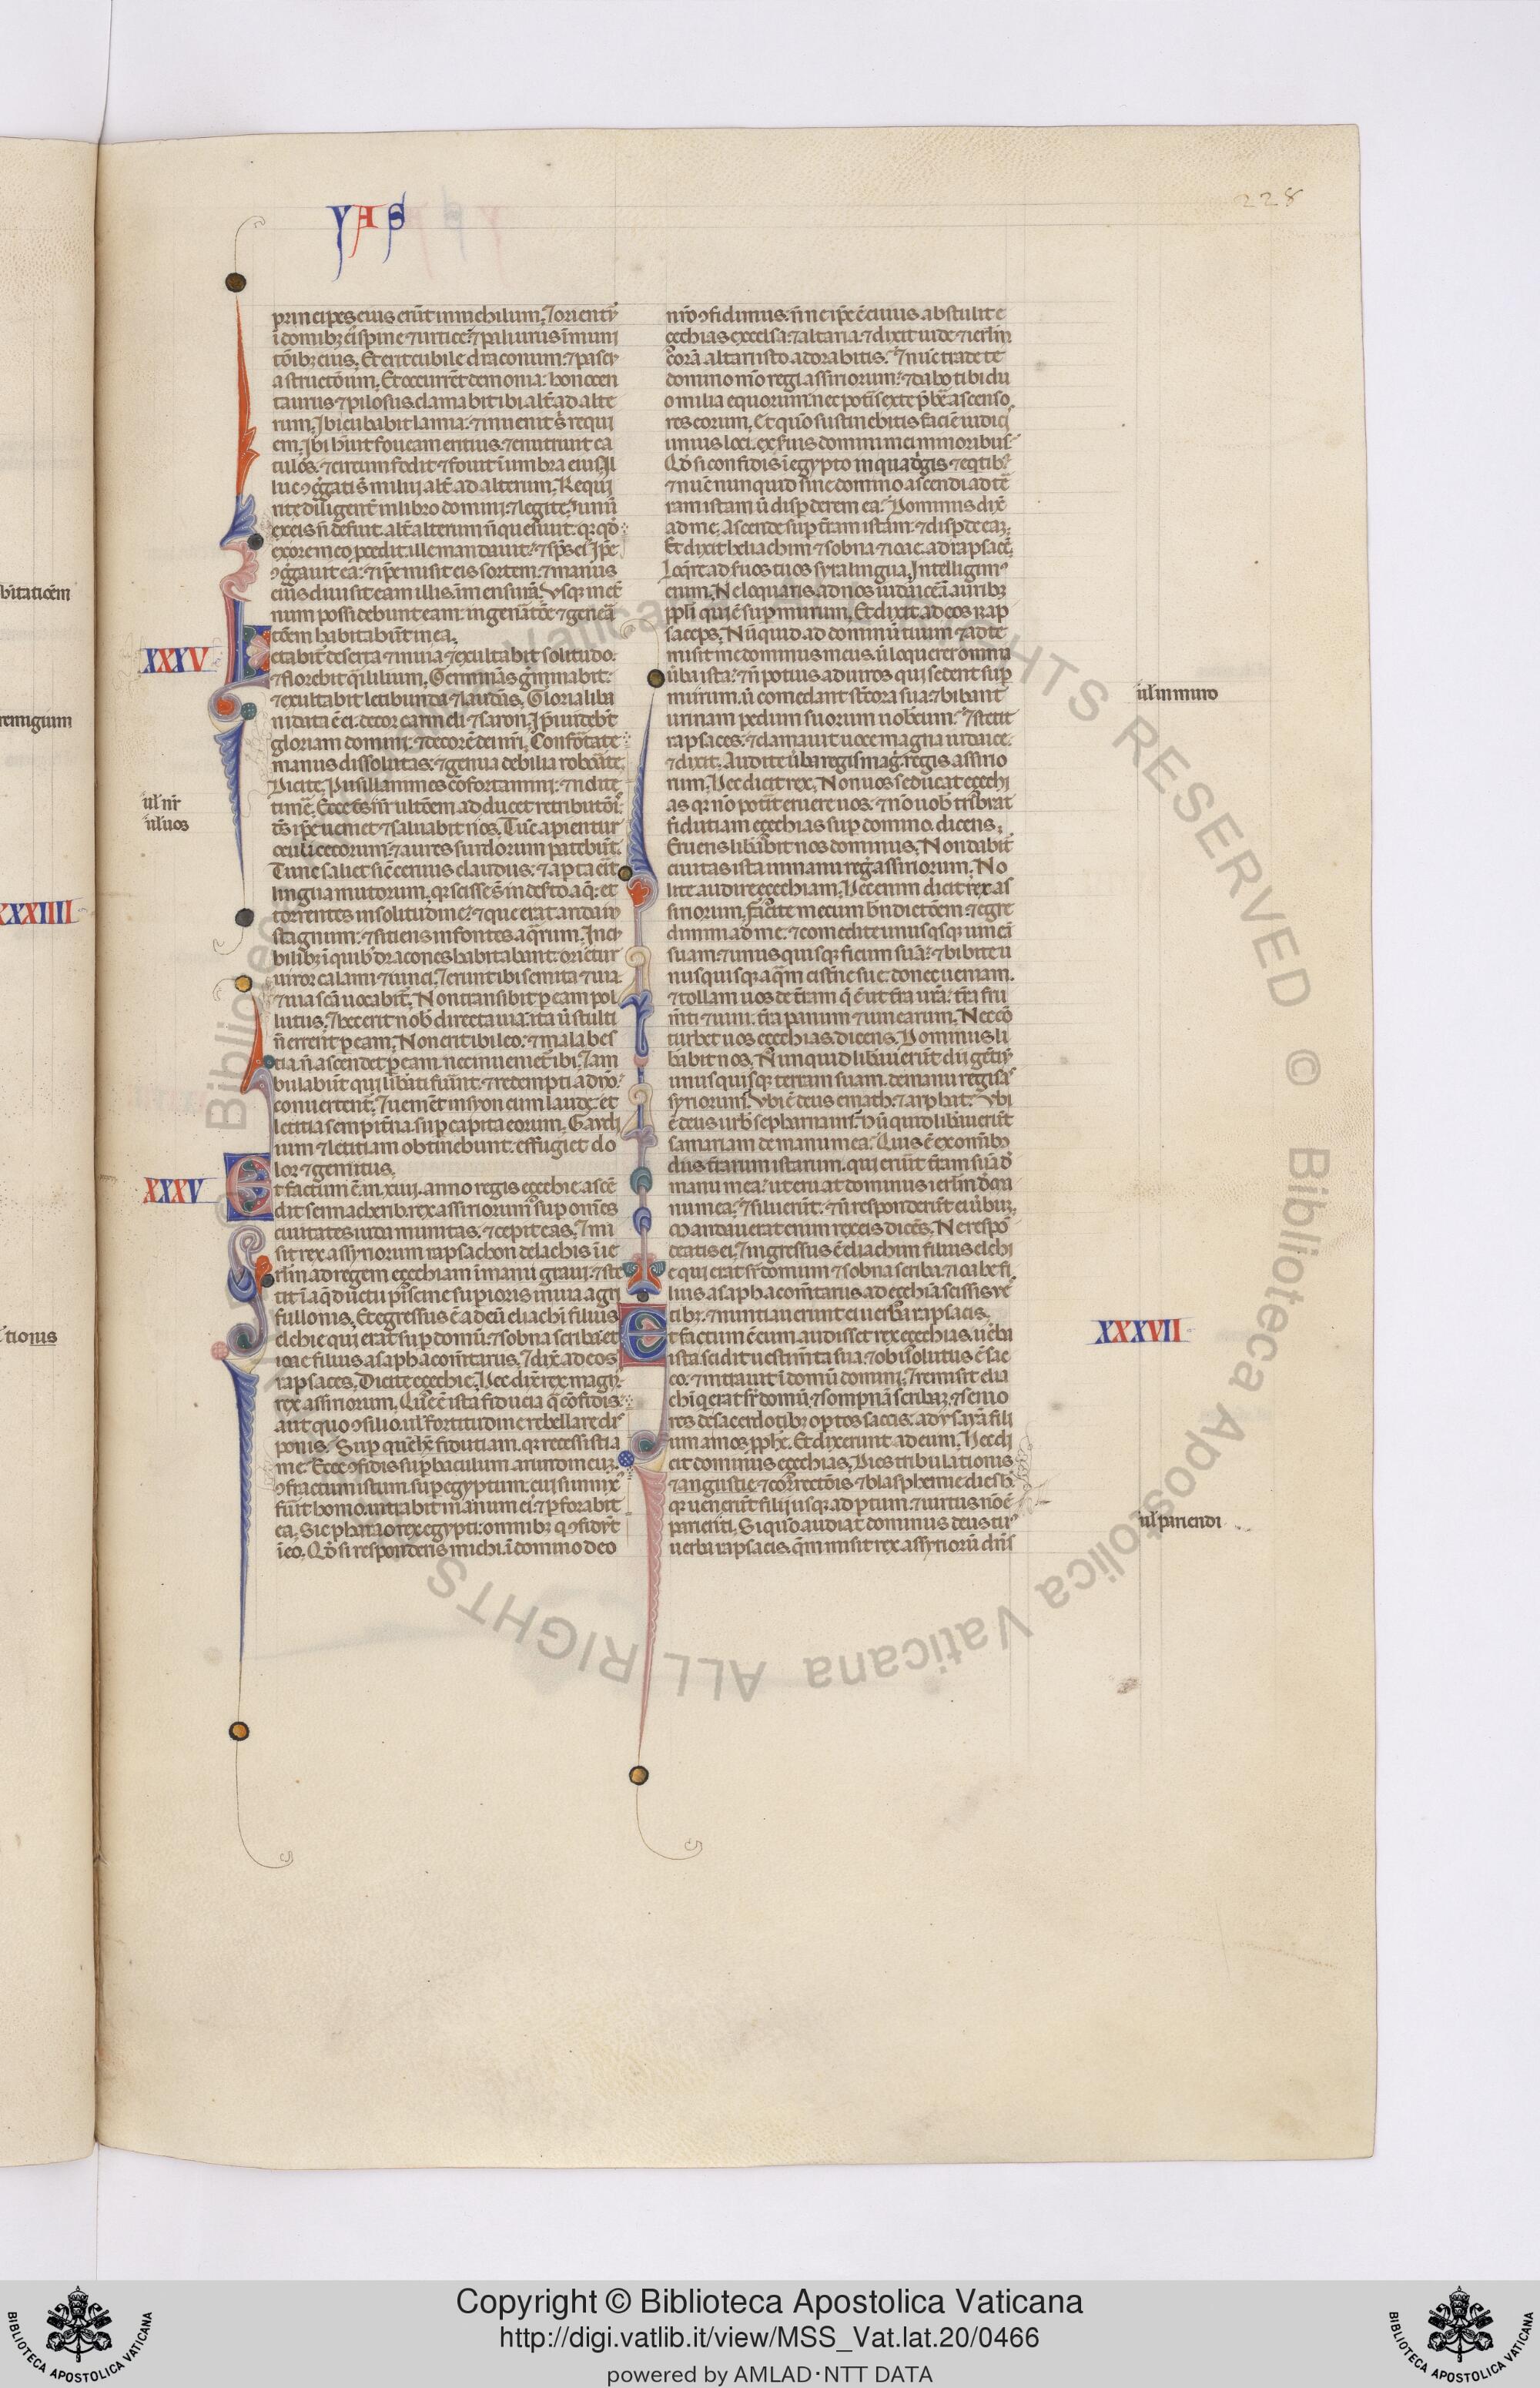 228
YAS
principes eius erūt in nichilum. ⁊ orientr̄
ī domibꝫ eiꝰ spine ⁊ urtice: ⁊ paliurus ī muni
tōibꝫ eius. Et erit cubile draconum: ⁊ pascua
a structōnum. Et occurrēt demonia: honocen
taurus ⁊ pilosus clamabit ibi alt̄ ad alte
rum. Ibi cubabit lamia: ⁊ inuenit s̄ requi
em. Ibi hūit foueam ericius: ⁊ enutriuit ca
tulos. ⁊ circum fodit ⁊ fouit ī umbra eius. Il
luc ꝯḡgati s̄ milui alt̄ ad alterum. Requi
rite diligent̄ in libro domini: ⁊ legite. unū
ex eis n̄ defuit. alt̄ alterum n̄ quesiuit. qꝫ qd̓
ex ore meo p̄cedit. ille mandauit: ⁊ sp̄s eiꝰ ip̄e
ꝯḡgauit ea: ⁊ ip̄e misit eis sortem. ⁊ manus
eius diuisit eam illis ī mensurā. Vsqꝫ in et̄
num possidebunt eam. in gen̄atōe ⁊ gen̄ea
tōem habitabūt in ea.
XXXV
Letabit̄ deserta ⁊ inuia ⁊ exultabit solitudo.
⁊ florebit qͣ lilium. Germinās g̓minabit.
⁊ exultabit letibunda ⁊ laudās. Gloria liba
ni data ē ei. decor carmeli ⁊ saron. Ip̄i uidebt̄
gloriam domini: ⁊ decorē dei nr̄i. Confortate
manus dissolutas: ⁊ genua debilia roborate.
Dicite. Pusillanimes cōfortamini: ⁊ nolite
timē. Ecce deꝰ ur̄ ultōem adducet retributōīs.
ul̓ nr̄
ul̓ uos
deꝰ ip̄e ueniet ⁊ saluabit nos. Tūc apientur
oculi cecorum: ⁊ aures surdorum patebūt.
Tunc saliet sic̄ ceruus claudus: ⁊ apta erit
lingua mutorum. qꝫ scisse s̄ in desto aq̄: et
torrentes in solitudine: ⁊ que erat arida in
stagnum: ⁊ sitiens in fontes aqͣrum. In cu
bilibꝫ ī quibꝰ dracones habitabant. orietur
uiror calami ⁊ iunci. ⁊ erunt ibi semita ⁊ uia
⁊ uia scā uocabit̄. Non transibit p eam pol
lutus. ⁊ hec erit nob̓ directa uia. ita ut̄ stulti
n̄ errent p eam. Non erit ibi leo: ⁊ mala bes
tia n̄ ascendet p eam. nec inueniet̄ ibi. ⁊ am
bulabūt qui libāti fūint. ⁊ redempti a dn̄o.
conuertent̄. ⁊ uenient in syon cum laude. et
letitia sempit̄na sup capita eorum. Gaudi
um ⁊ letitiam obtinebunt. effugiet do
lor ⁊ gemitus.
XXXV
Et factum ē in xiiij. anno regis eçechie ascē
dit sennacherib rex assiriorum sup omnes
ciuitates iuda munitas. ⁊ cepit eas. ⁊ mi
sit rex assyriorum rapsachen de lachis ī ie
rl̄m ad regem eçechiam ī manu graui. ⁊ ste
tit ī aq̄ ductu piscine supioris in uia agri
fullonis. Et egressus ē ad eū eliachī filius
elchie qui erat sup domū: ⁊ sobna scriba. et
ioae filius asaph a com̄tarus. ⁊ dix̄ ad eos
rapsaces. Dicite eçechie. Hec dic̄ rex magꝰ.
rex assiriorum. Que ē ista fiducia qͣ cōfidis.
aut quo ꝯsilio. ul̓ fortitudine rebellare dis
ponis. Sup quē hēs fidutiam. qꝫ recessisti a
me. Ecce ꝯfidis sup baculum arundineuꝫ
ꝯfractum istum sup egyptum. cui si innixꝰ
fuit homo. intrabit manum eiꝰ ⁊ pforabit
eā. Sic pharao rex egypti: omnibꝫ q̄ ꝯfidūt
ī eo. Qd̓ si responderis michi. ī domino deo
nr̄o ꝯfidimus: n̄ne ip̄e ē cuius abstulit e
çechias excelsa: ⁊ altaria. ⁊ dixit iude ⁊ ierl̄m
Corā altari isto adorabitis. ⁊ nūc trade te
domino mō regi assiriorum. ⁊ dabo tibi du
o milia equorum. nec potis ex te p̄bē ascenso
res eorum. Et quō sustinebitis faciē iudicis
unius loci. ex suis domini mei minoribus.
Qd̓ si confidis ī egypto in quadrigis ⁊ eqtibꝫ
⁊ nūc nunquid sine domino ascendi ad tē
ram istam ut̄ disp̄derem ea. Dominus dix̄
ad me. Ascende sup t̄ram istam. ⁊ disp̄de eaꝫ.
Et dixit heliachim ⁊ sobna ⁊ ioae. ad rapsacē.
Loq̄re ad suos tuos syra lingua. Intelligimꝰ
enim. Ne loquaris ad nos iudaice ī auribꝫ
ppl̄i qui ē sup murum. Et dixit ad eos rap
saces. Nūquid ad dominū tuum ⁊ ad te
misit me dominus meus. ut̄ loquerer omnia
ūba ista: ⁊ n̄ potius ad uiros qui sedent sup
ul̓ in muro
murum. ut̄ comedant stercora sua. ⁊ bibant
urinam pedum suorum uobiscum. ⁊ stetit
rapsaces. ⁊ clamauit uoce magna iudaice.
⁊ dixit. Audite ūba regis magͥ. regis assirio
rum. Hec dicit rex. Non uos seducat eçechi
as qꝫ nō potit eruere uos. ⁊ nō uob̓ tribuat
fidutiam eçechias sup domino. dicens.
Eruens libabit nos dominus. Non dabit̄
ciuitas ista in manu regͥ assiriorum. No
lite audire eçechiam. Hec enim dicit rex as
siriorum. facite mecum bn̄dictōem ⁊ egre
dimini ad me. ⁊ comedite unusqsqꝫ uineā
suam: ⁊ unusquisqꝫ ficum suā: ⁊ bibite u
nusquisqꝫ aqͣm cist̄ne sue. donec ueniam.
⁊ tollam uos de t̄ram q̄ ē ut t̄ra ur̄a. t̄ra fru
m̄ti ⁊ uini. t̄ra panum ⁊ uinearum. Nec cō
turbet uos eçechias. dicens. Dominus li
babit nos. Nunquid libauerūt dii gentiū
unusquisqꝫ terram suam. de manu regis as
syriorum. Vbi ē deus emath: ⁊ arphat. Vbi
ē deus urbis sepharnaim. Nū quid libauerūt
samariam de manu mea. Quis ē ex omnibꝫ
diis t̄rarum istarum. qui eruit t̄ram suā d̓
manu mea: ut eruat dominus ierl̄m de ma
nu mea. ⁊ siluerūt. ⁊ n̄ responderūt ei ūbuꝫ.
Mandauerat enim rex eis dicēs. Ne respō
deatis ei. ⁊ ingressus ē eliachim filius elchi
e qui erat sr̄ domum ⁊ sobna scriba. ⁊ ioahe fi
lius asaph a com̄tarius. ad eçechiā scissis ues
tibꝫ. ⁊ nuntiauerunt ei uerba rapsacis.
XXXVII
Et factum ē cum audisset rex eçechias. ūba
ista scidit uestim̄ta sua. ⁊ obuolutus ē sac
co. ⁊ intrauit ī domū domini. ⁊ remisit elia
chī q erat sr̄ domū. ⁊ sompnā scribaꝫ. ⁊ senio
res de sacerdotibꝫ op̄tos saccis. ad ysayā fili
um amos pph̄e. Et dixerunt ad eum. Hec di
cit dominus eçechias. Dies tribulationis
⁊ angustie ⁊ correctōis ⁊ blaspheme dies h̄.
qꝫ uenerūt filij usqꝫ ad p̄tum. ⁊ uirtus nō ē
pariendi. Si quō audiat dominus deus tuꝰ
ul̓ pariendi
uerba rapsacis. qͣm misit rex assyriorū dn̄s
bitatiōem
remigium
XXXIIII
tionis
Copyright © Biblioteca Apostolica Vaticana
http://digi.vatlib.it/view/MSS_Vat.lat.20/0466
powered by AMLAD·NTT DATA
BIBLIOTECA APOSTOLICA VATICANA
BIBLIOTECA APOSTOLICA VATICANA
© Biblioteca Apostolica Vaticana ALL RIGHTS RESERVED © Biblioteca Apostolica Vaticana ALL RIGHTS